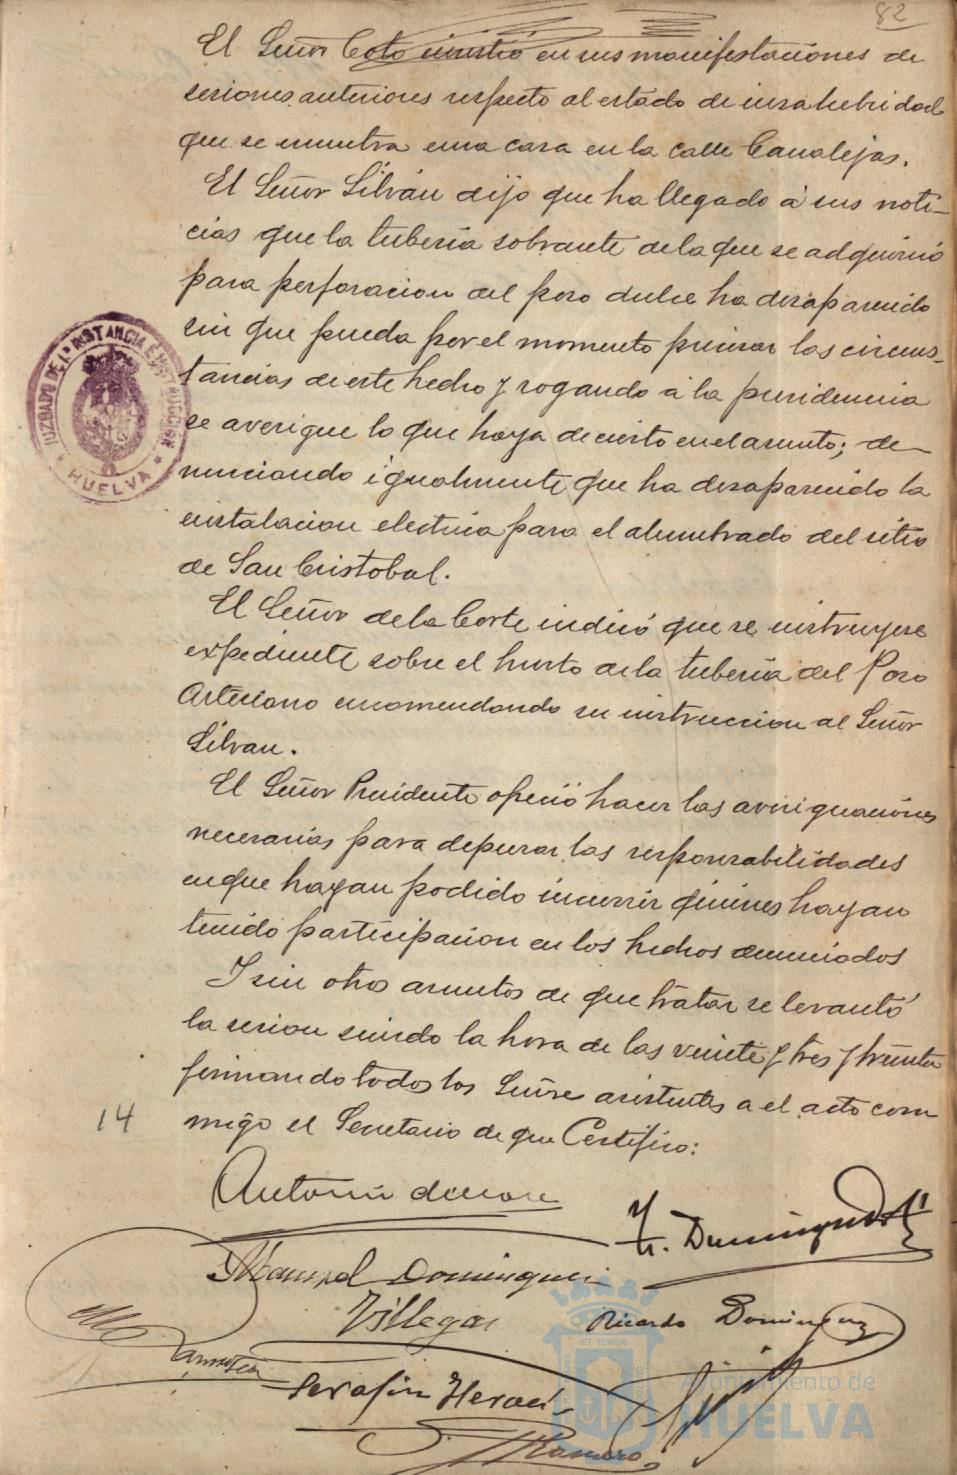 82
El Señor Coto insistió en sus manifestaciones de
sesiones anteriores respecto al estado de insalubridad
que se encuentra una casa en la calle Canalejas.
El Señor Silván dijo que ha llegado á sus noti-
cias que la tuberia sobrante de la que se adquirió
para perforacion del pozo dulce ha desaparecido
sin que pueda por el momento precisar las circuns-
tancias de este hecho y rogando á la presidencia
se averigue lo que haya de cierto en el asunto; de-
nunciando igualmente que ha desaparecido la
instalacion electrica para el alumbrado del sitio
de San Cristobal.
El Señor de la Corte indicó que se instruyese
expediente sobre el hurto de la tuberia del Pozo
Artesiano encomendando su instruccion al Señor
Silvan.
El Señor Presidente ofreció hacer las averiguaciones
necesarias para depurar las responsabilidades
en que hayan podido incurrir quienes hayan
tenido participacion en los hechos denunciados
Y sin otros asuntos de que tratar se levantó
la sesion siendo la hora de las veinte y tres y treinta
firmando todos los Señores asistentes a el acto con-
migo el Secretario de que Certifico:
14
JUZGADO DE 1ª INSTANCIA E INSTRUCCION
* HUELVA *
Antonio
Dominguez
Manuel Dominguez
Villegas
Ricardo Dominguez
Serafin
Romero
Ayuntamiento de
HUELVA